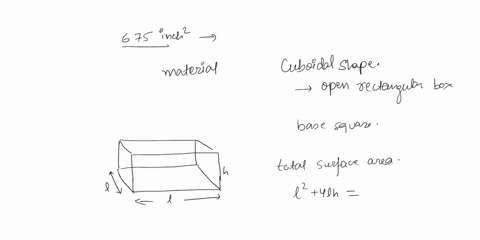 675 inch² →
material
Cuboidal shape.
→ open rectangular box
base square.
total surface area.
l² + 4lh =
h
l
l